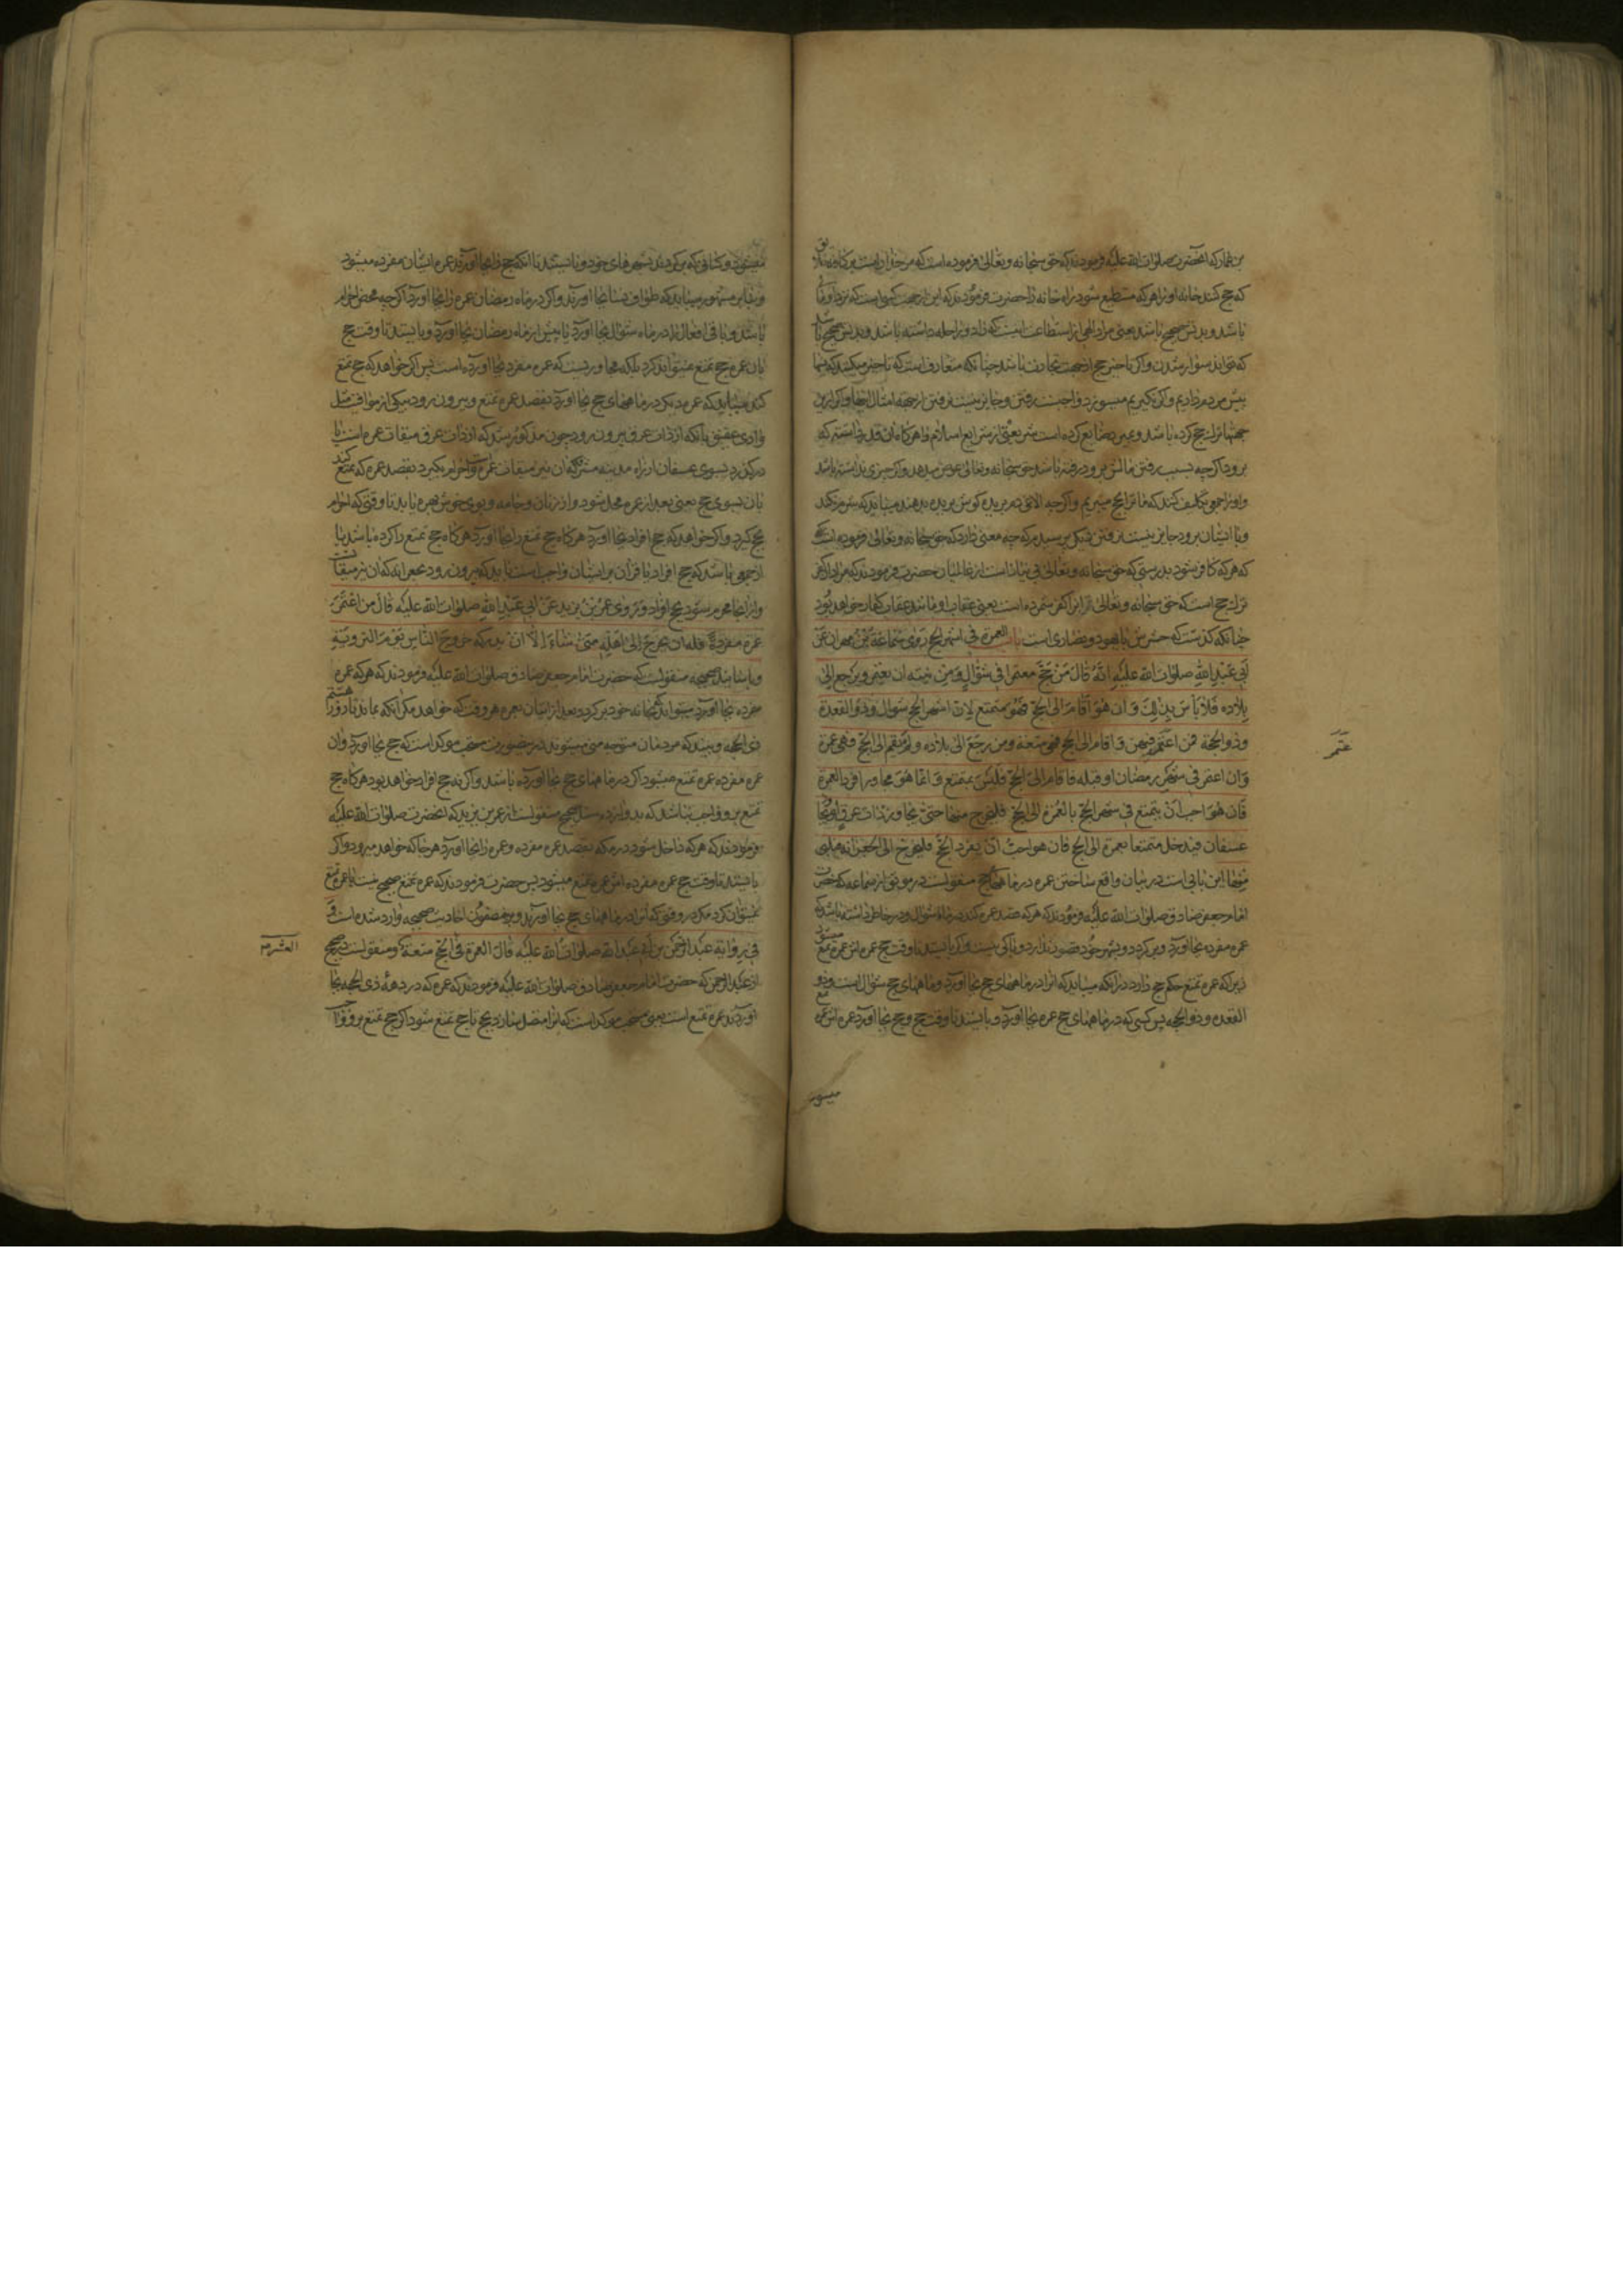 بن عمار که آنحضرت صلوات الله علیه فرمودند که حق سبحانه و تعالی فرموده است که مر خدا راست
که حج کنند خانه او را هر که مستطیع شود راه خانه را حضرت فرمودند که این از جهت کسی است که نزد او مال
باشد و بدنش صحیح باشد یعنی مراد الهی از استطاعت اینست که زاد و راحله داشته باشد و بدنش صحیح باشد
که تواند سوار شدن و اگر تاخیر حج از جهت تجارت باشد چنانکه متعارفست که تاخیر میکنند که
پیش مردم داریم و اگر نگیریم میسوزد واجبست رفتن و جایز نیست نرفتن از جهة امثال اینها و اگر ازین
جهتها ترک حج کرده باشد و بمیرد ضایع کرده است شریعتی از شرایع اسلام را هرگاه آن قدر داشته که
برود اگر چه بسبب رفتن مالش برود رفته باشد حق سبحانه و تعالی عوض میدهد و اگر چیزی نداشته باشد
و او را جمعی تکلیف کنند که ما ترا بحج میبریم و اگر چه الاغی دم بریده گوش بریده بدهند میباید که شرم نکند
و با ایشان برود جایز نیست نرفتن دیگر پرسیدم که چه معنی دارد که حق سبحانه و تعالی فرموده است
که هر که کافر شود بدرستی که حق سبحانه و تعالی بی نیاز است از عالمیان حضرت فرمودند که مراد از کفر
ترک حج است که حق سبحانه و تعالی آنرا کفر شمرده است یعنی عقاب او مانند عقاب کفار خواهد بود
چنانکه گذشت که حشرش با یهود و نصاری است باب العمرة فی اشهر الحج روی سماعة بن مهران عن
ابی عبد الله صلوات الله علیه انه قال من حج معتمرا فی شوال و من نیته ان یعتمر و یرجع الی
بلاده فلا باس بذلک و ان هو اقام الی الحج فهو متمتع لان اشهر الحج شوال و ذو القعدة
و ذو الحجة فمن اعتمر فیهن و اقام الی الحج فهی متعة و من رجع الی بلاده و لم یقم الی الحج فهی عمرة
و ان اعتمر فی شهر رمضان او قبله فاقام الی الحج فلیس بمتمتع و انما هو مجاور افرد العمرة
فان هو احب ان یتمتع فی شهر الحج بالعمرة الی الحج فلیخرج منها حتی یجاوز ذات عرق او یجاوز
عسفان فیدخل متمتعا بعمرة الی الحج فان هو احب ان یفرد الحج فلیخرج الی الجعرانة فیلبی
منها این بابی است در بیان واقع ساختن عمره در ماههای حج منقولست در موثق از سماعه که حضرت
امام جعفر صادق صلوات الله علیه فرمودند که هر که قصد عمره کند در ماه شوال و در خاطر داشته باشد که
عمره مفرده بجا آورد و برگردد و بشهر خود قصوری ندارد و باکی نیست و اگر بایستد تا وقت حج عمره اش عمره تمتع میشود
زیرا که عمره تمتع حکم حج دارد در آنکه میباید که آنرا در ماههای حج بجا آورد و ماههای حج شوال است و ذو
القعده و ذو الحجه پس کسی که در ماههای حج عمره بجا آورد و بایستد تا وقت حج و حج بجا آورد عمره اش عمره تمتع
میشود
میشود و کسانی که برگردند بشهرهای خود و نایستند تا آنکه حج را بجا آورند عمره ایشان مفرده میشود
و بنابر مشهور میباید که طواف نسا بجا آورند و اگر در ماه رمضان عمره را بجا آورد اگر چه محض احرام
باشد و باقی افعال را در ماه شوال بجا آورد یا پیش از ماه رمضان بجا آورد و بایستد تا وقت حج
بان عمره حج تمتع نمیتواند کرد بلکه مجاوریست که عمره مفرده بجا آورده است پس اگر خواهد که حج تمتع
کند میباید که عمره دیگر در ماههای حج بجا آورد بقصد عمره تمتع و بیرون رود بیکی از مواقیت مثل
وادی عقیق بانکه از ذات عرق بیرون رود چون مذکور شد که از ذات عرق میقات عمره است یا
در گذرد بسوی عسفان از راه مدینه مشرفه که آن نیز میقات عمره و احرام بگیرد بقصد عمره که تمتع کند
بان بسوی حج یعنی بعد از عمره محل شود و از زنان و جامه و بوی خوش بهره یابد تا وقتی که احرام
بحج گیرد و اگر خواهد که حج افراد بجا آورد هرگاه حج تمتع را بجا آورد هرگاه حج تمتع را کرده باشد یا
از جمعی باشد که حج افراد یا قران بر ایشان واجبست باید که بیرون رود بجعرانه که آن نیز میقاتست
و از انجا محرم شود بحج افراد و روی عمر بن یزید عن ابی عبد الله صلوات الله علیه قال من اعتمر
عمرة مفردة فله ان یخرج الی اهله متی شاء الا ان یدرکه خروج الناس یوم الترویة
و باسانید صحیحه منقولست که حضرت امام جعفر صادق صلوات الله علیه فرمودند که هر که عمره
مفرده بجا آورد میتواند که بخانه خود برگردد بعد از اتیان بعمره هر وقت که خواهد مگر آنکه بماند تا روز هشتم
ذی الحجه و بیند که مردمان متوجه منی میشوند درین صورت سنت موکد است که حج بجا آورد و آن
عمره مفرده عمره تمتع میشود اگر در ماههای حج بجا آورده باشد و اگر نه حج افراد خواهد بود هرگاه حج
تمتع برو واجب نباشد که بدو از ده میل صحیح منقولست از عمر بن یزید که آنحضرت صلوات الله علیه
فرمودند که هر که داخل شود در مکه بقصد عمره مفرده و عمره را بجا آورد هر جا که خواهد میرود و اگر
بایستد تا وقت حج عمره مفرده اش عمره تمتع میشود پس حضرت فرمودند که عمره تمتع صحیح نیست یا عمره تمتع
نمیتوان کرد مگر در وقتی که آنرا در ماههای حج بجا آورند و برین مضمون احادیث صحیحه وارد شده است و
فی روایة عبد الرحمن بن ابی عبد الله صلوات الله علیه قال العمرة فی الحج متعة و منقولست در صحیح
از عبد الرحمن که حضرت امام جعفر صادق صلوات الله علیه فرمودند که عمره که در دهه ذی الحجه بجا
آورند عمره تمتع است یعنی سنت موکد است که آنرا متصل سازد بحج تا حج تمتع شود اگر حج تمتع برو واجب
العشر م